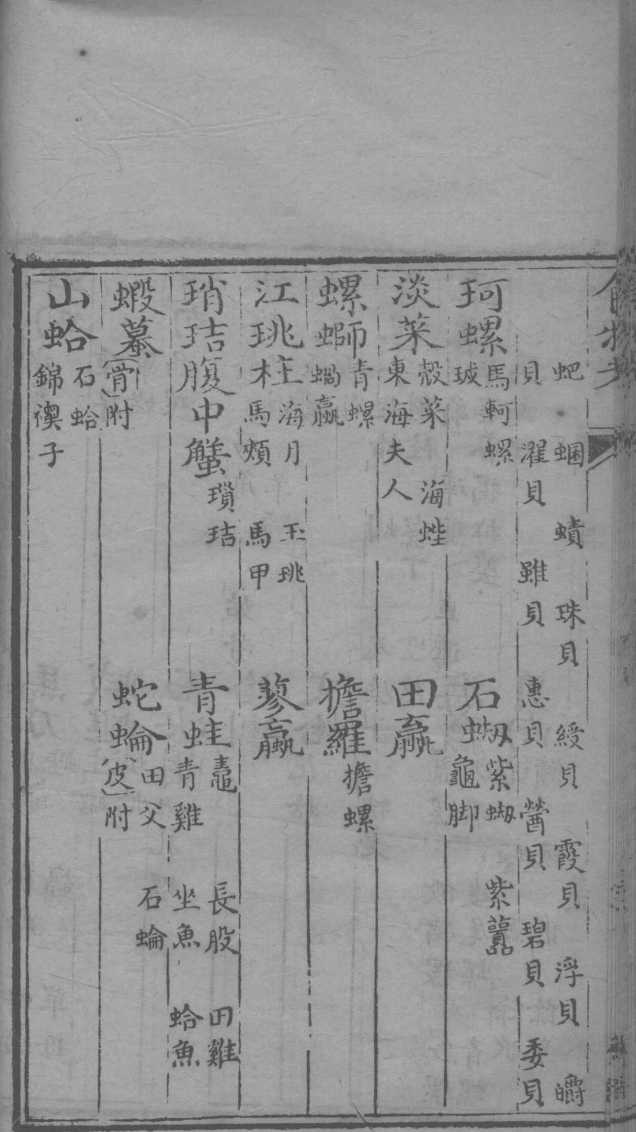 蚆 蜠 蟦 珠貝 綬貝 霞貝 浮貝 㿨
貝 濯貝 雖貝 惠貝 營貝 碧貝 委貝
珂螺 馬軻螺 珬
石蜐 紫蜐 紫蠚 龜脚
淡菜 殼菜 海蜌 東海夫人
田蠃
螺螄 青螺 蝸蠃
擔羅 擔螺
江珧柱 海月 玉珧 馬頰 馬甲
蓼蠃
琑琂腹中蟹 瓆琂
青蛙 䵷 長股 田雞 青雞 坐魚 蛤魚
蝦蟇 骨附
蛇蜦 皮附 田父 石蜦
山蛤 石蛤 錦襖子